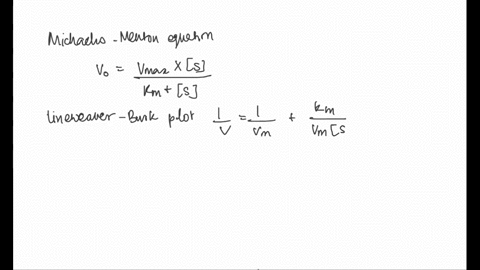 Michaelis - Menton equation
V₀ = Vmax × [S] / Km + [S]
Lineweaver - Burk plot 1/V = 1/Vm + Km/Vm [S